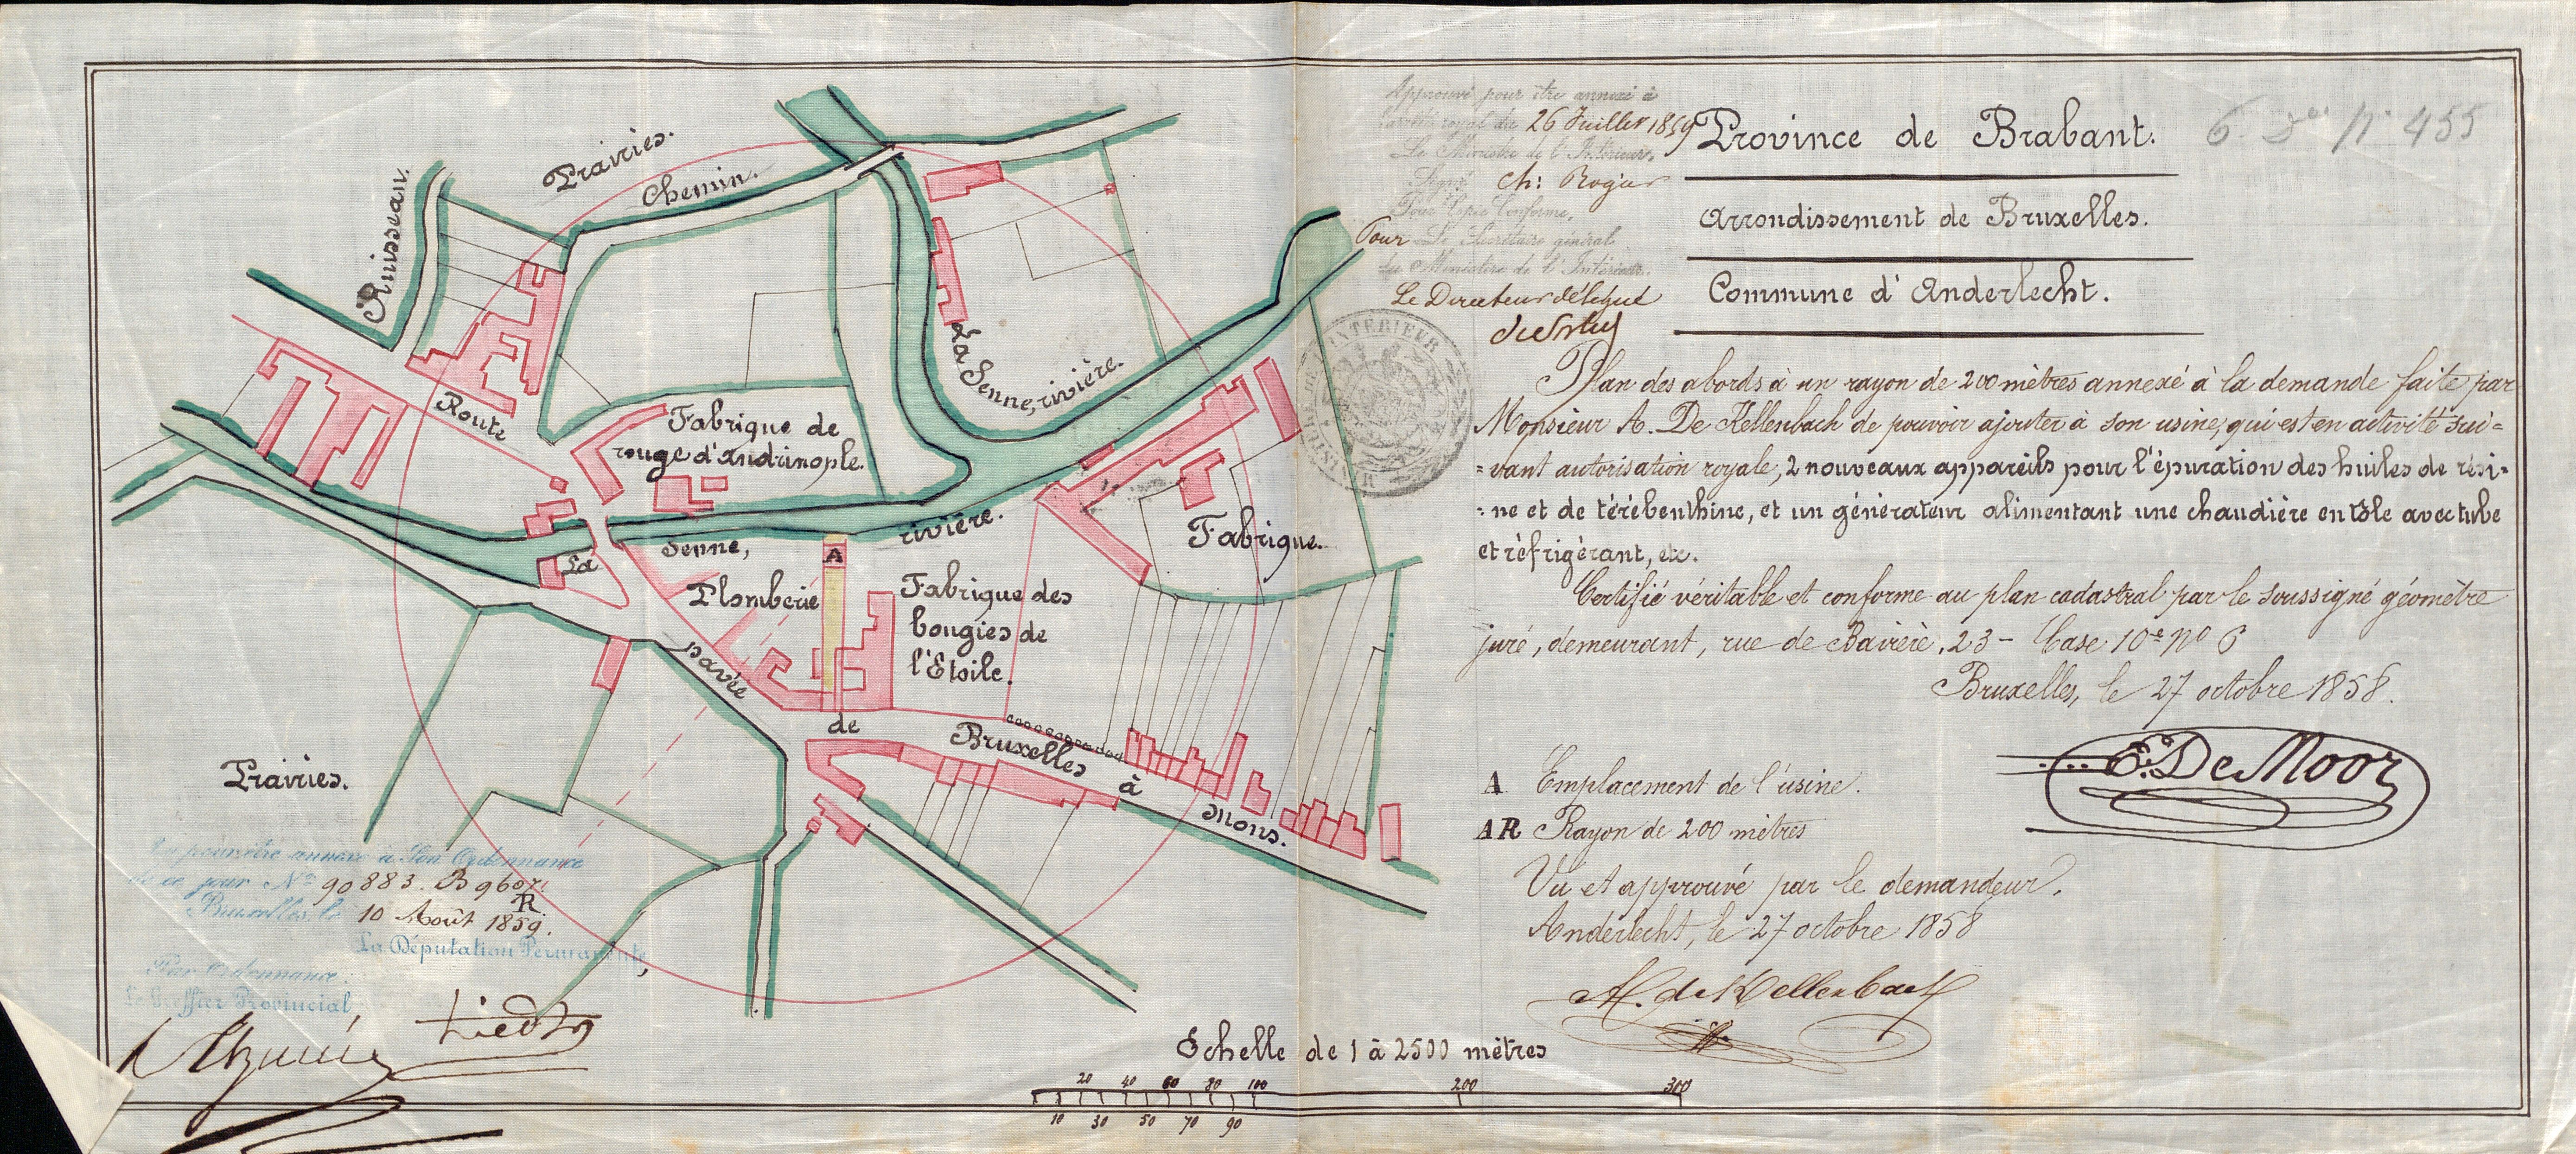 Approuvé pour être annexé à
l'arrêté royal du 26 Juillet 1859
Le Ministre de l'Intérieur,
Signé Ch: Rogier
Pour Copie Conforme,
Pour Le Secrétaire général
du Ministère de l'Intérieur.
Le Directeur délégué
6. Don N° 455
Province de Brabant.
Arrondissement de Bruxelles.
Commune d'Anderlecht.
Plan des abords à un rayon de 200 mètres annexé à la demande faite par
Monsieur A. De Kellenbach de pouvoir ajouter à son usine, qui est en activité sui=
=vant autorisation royale, 2 nouveaux appareils pour l'épuration des huiles de rési=
=ne et de térébenthine, et un générateur alimentant une chaudière en tôle avec tube
et réfrigérant, etc.
Certifié véritable et conforme au plan cadastral par le soussigné géomètre
juré, demeurant, rue de Bavière, 23 - Case 10e no 6
Bruxelles, le 27 octobre 1858.
E. De Moor
A Emplacement de l'usine.
AR Rayon de 200 mètres
Vu et approuvé par le demandeur.
Anderlecht, le 27 octobre 1858
A. de Kellenbach
Prairies.
Chemin.
Ruisseau.
Route
La Senne, rivière.
Fabrique de
rouge d'Andrinople.
La Senne, rivière.
A
Plomberie
Fabrique des
bougies de
l'Etoile.
Fabrique.
pavée de Bruxelles à Mons.
Prairies.
Vu pour être annexé à Son Ordonnance
de ce jour No 90883. B 9607.
R.
Bruxelles, le 10 Août 1859.
La Députation Permanente,
Par Ordonnance:
Le Greffier Provincial,
Echelle de 1 à 2500 mètres
20 40 60 80 100 200 300
10 30 50 70 90